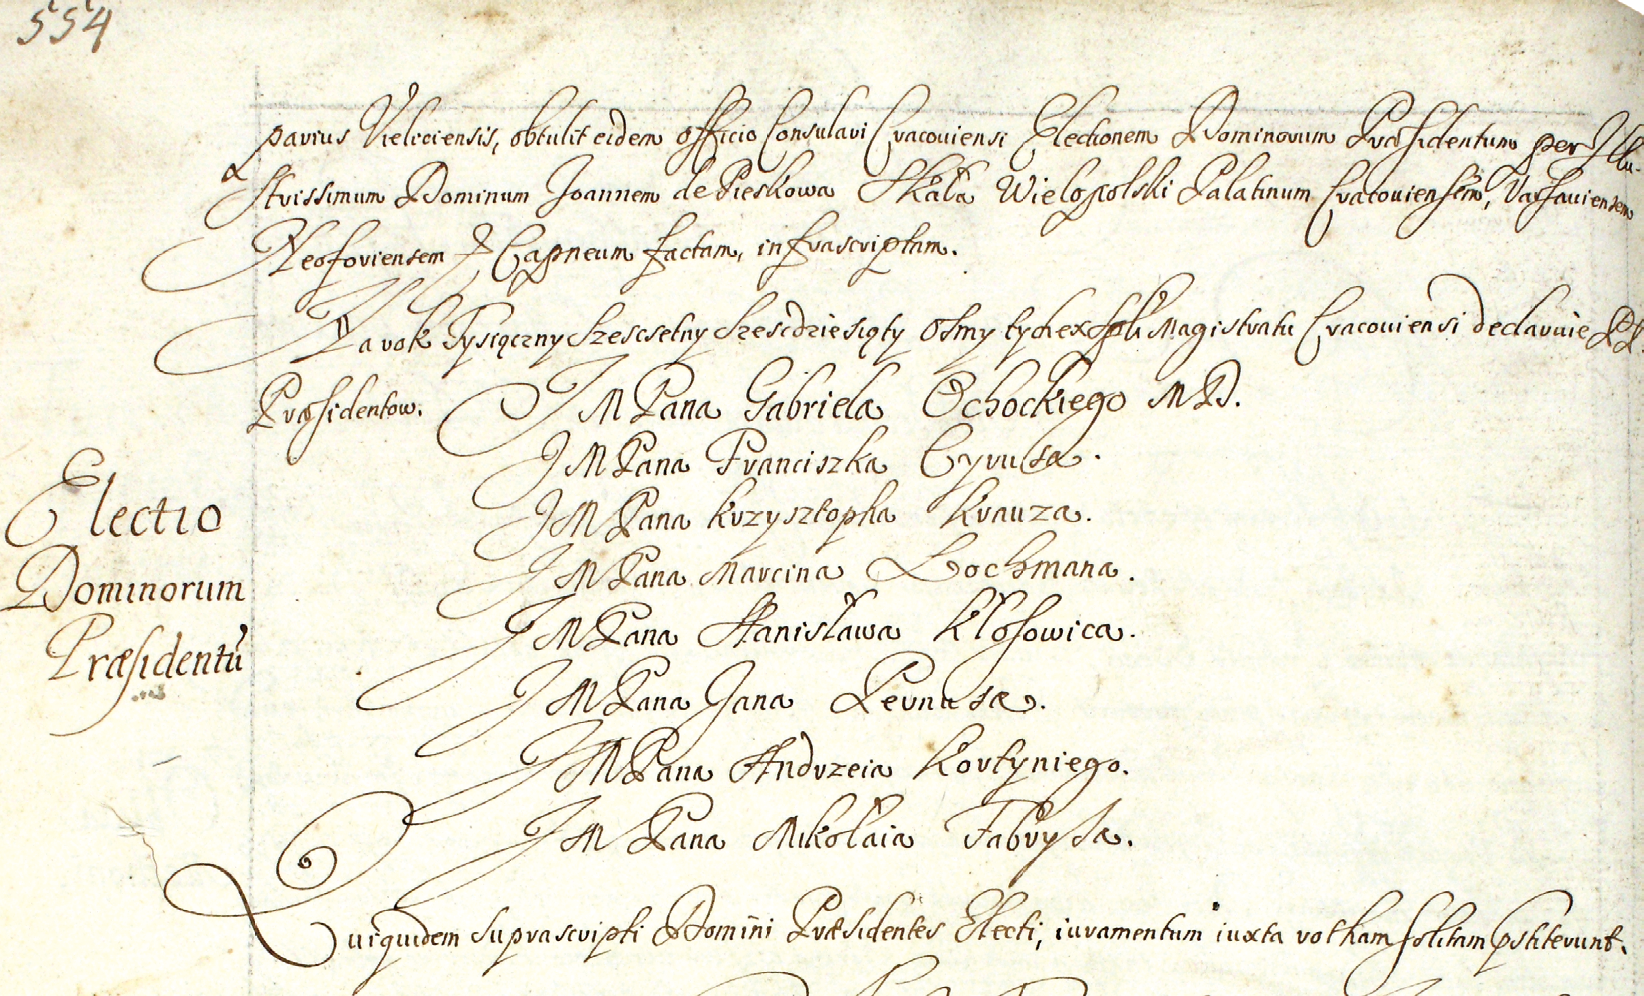 554
parius Vieliciensis, obtulit eidem officio Consulari Cracoviensi Electionem Dominorum Præsidentum per Illu-
strissimum Dominum Joannem de Pieskowa Skała Wielopolski Palatinum Cracoviensem, Varsaviensem
Neoforiensem & Capneum factam, infrascriptam.
Na rok Tysiączny Szescsetny Szescdziesiąty osmy tychex Magistratu Cracoviensi declaruie PP.
Præsidentow. J M Pana Gabriela Ochockiego M D.
J M Pana Franciszka Cyrusa.
J M Pana Krzysztopha Krauza.
J M Pana Marcina Lochmana.
J M Pana Stanisława Kłosowica.
J M Pana Jana Pernusa.
J M Pana Andrzeia Kortyniego.
J M Pana Mikołaia Fabrysa.
Electio
Dominorum
Præsidentũ
Quiquidem suprascripti Domini Præsidentes Electi, iuramentum iuxta rotham solitam pstiterunt.